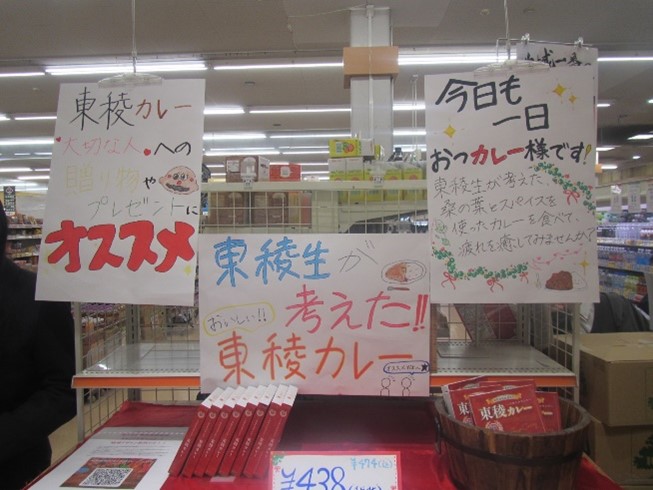 東稜カレー
大切な人への
贈り物や
プレゼントに
オススメ
東稜生が
考えた!!
おいしい!!
東稜カレー
今日も
一日
おつカレー様です!
東稜生が考えた、
桑の葉とスパイスを
使ったカレーを食べて、
疲れを癒してみませんか?
東稜カレー
¥438